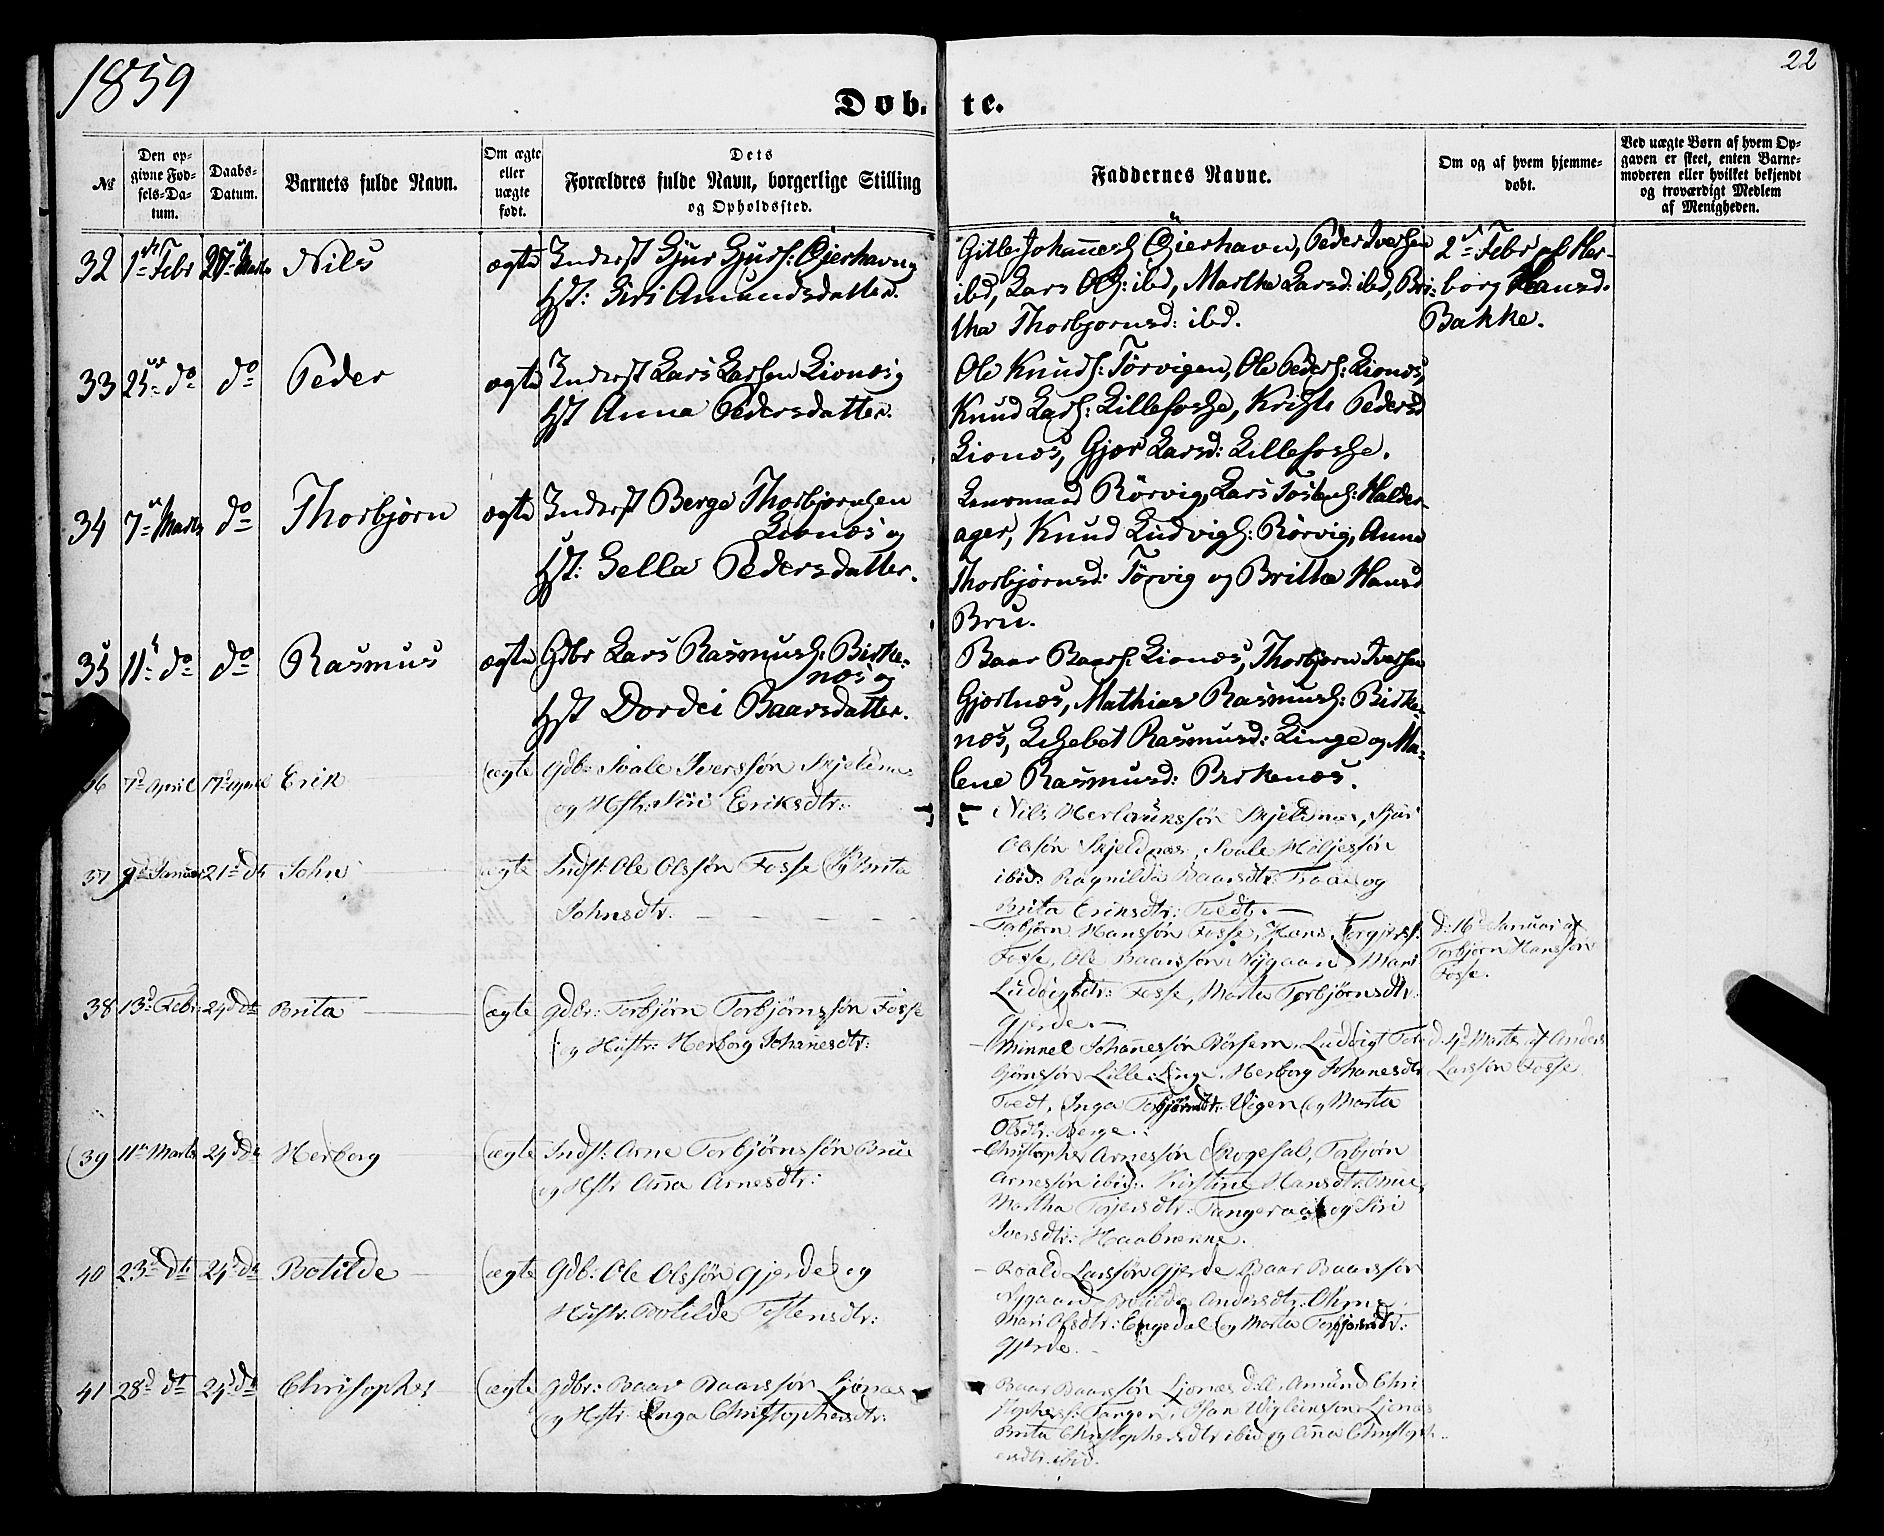 1859
22
Døb- te.
No
Den op-
givne Fød-
sels-Da-
tum.
Daabs-
Datum.
Barnets fulde Navn.
Om ægte
eller
uægte
født.
Dets
Forældres fulde Navn, borgerlige Stilling
og Opholdssted.
Faddernes Navne.
Om og af hvem hjemme-
døbt.
Ved uægte Børn af hvem Op-
gaven er skeet, enten Barne-
moderen eller hvilket bekjendt
og troværdigt Medlem
af Menigheden.
32 1ste Febr 27de Marts Nils ægte Inderst Gjur Gjurs: Øjerhavn og
Hst: Siri Amundsdatter.
Gitle Johannes: Øjerhavn, Peder Iversen
ibd, Lars Ols: ibd, Martha Larsd: ibd, Bri-
tha Thorbjørnsd: ibd.
2den Febr af Her-
borg Hansd.
Bakke.
33 25de do do Peder ægte Inderst Lars Larsen Lionæs og
Hst Anna Pedersdatter.
Ole Knuds: Tørvigen, Ole Peders: Lionæs,
Knud Lars: Lillefosse, Kristi Pedersd
Lionæs, Gjør Larsd: Lillefosse.
34 7de Marts do Thorbjørn ægte Inderst Berge Thorbjørnsen
Lionæs og
Hst: Sella Pedersdatter.
Rørvig, Lars Tostens: Halder-
ager, Knud Ludvigs: Rørvig, Anna
Thorbjørnsd: Tørvig og Britha Hansd
Bru.
35 11te do do Rasmus ægte Gdbr Lars Rasmus: Birke-
næs og
Hst Dordei Baarsdatter.
Baar Baars: Lionæs, Thorbjørn Iversen
Gjertnæs, Mathias Rasmus: Birke-
næs, Lisebet Rasmusd: Linge og Ma-
lene Rasmusd: Birkenæs.
36 7d April 17d April Erik ægte Gdbr Svale Iverssøn Skjeldnæs
og Hstr: Siri Eriksdtr:
Nils Herlaukssøn Skjeldnæs, Sjur
Olssøn Skjeldnæs, Svale Høljessøn
ibid: Ragnilda Baarsdtr: Traae og
Brita Eriksdtr: Tvedt.
37 9d Januar 21d dt John ægte Indst: Ole Olssøn Fosse og Brita
Johnsdtr.
Torbjørn Hanssøn Fosse, Hans Torgierss:
Fosse, Ole Baarssøn Nygaard, Mari
Ludvigsdtr: Fosse, Marta Torbjørnsdtr:
Gjerde.
d: 16d Januar af
Torbjørn Hanssøn
Fosse.
38 13d Febr: 24d dt Brita ægte Gdbr: Torbjørn Torbjørnssøn Fosse
og Hustr: Herborg Johanesdtr:
Minnel Johannessøn Børsem, Ludvigt Tor-
bjørnssøn Lille Linge, Herborg Johanesdtr
Tvedt, Inga Torbjørnsdtr: Vigen og Marta
Olsdtr: Berge.
d. 4d Marts af Anders
Larssøn Fosse.
39 11te Marts 24d dt Herborg ægte Indst: Arne Torbjørnssøn Brue
og Hstr Anna Arnesdtr:
Christopher Arnessøn Rogefal, Torbjørn
Arnessøn ibid: Kirstine Hansdtr: Brue,
Martha Torjersdtr: Tangeraas og Siri
Iversdtr: Haabrenne.
40 23d dt 24d dt Botilde ægte Gdb: Ole Olssøn Gjerde og
Hustr: Botilde Tostensdtr:
Roald Larssøn Gjerde, Baar Baarssøn
Nygaard, Botilde Andersdtr:
Mari Olsdtr: Engedal og Marta Torbjørnsdtr:
Gjerde.
41 28d dt 24d dt Christopher ægte Gdbr: Baar Baarssøn Ljonæs
og Hstr Inga Christophersdtr:
Baar Baarssøn Ljonæs d: Æ, Amund Chri-
stophers: Tangen, Ljonæs
Brita Christophersdtr ibid og Anna Christoph-
ersdtr. ibid.